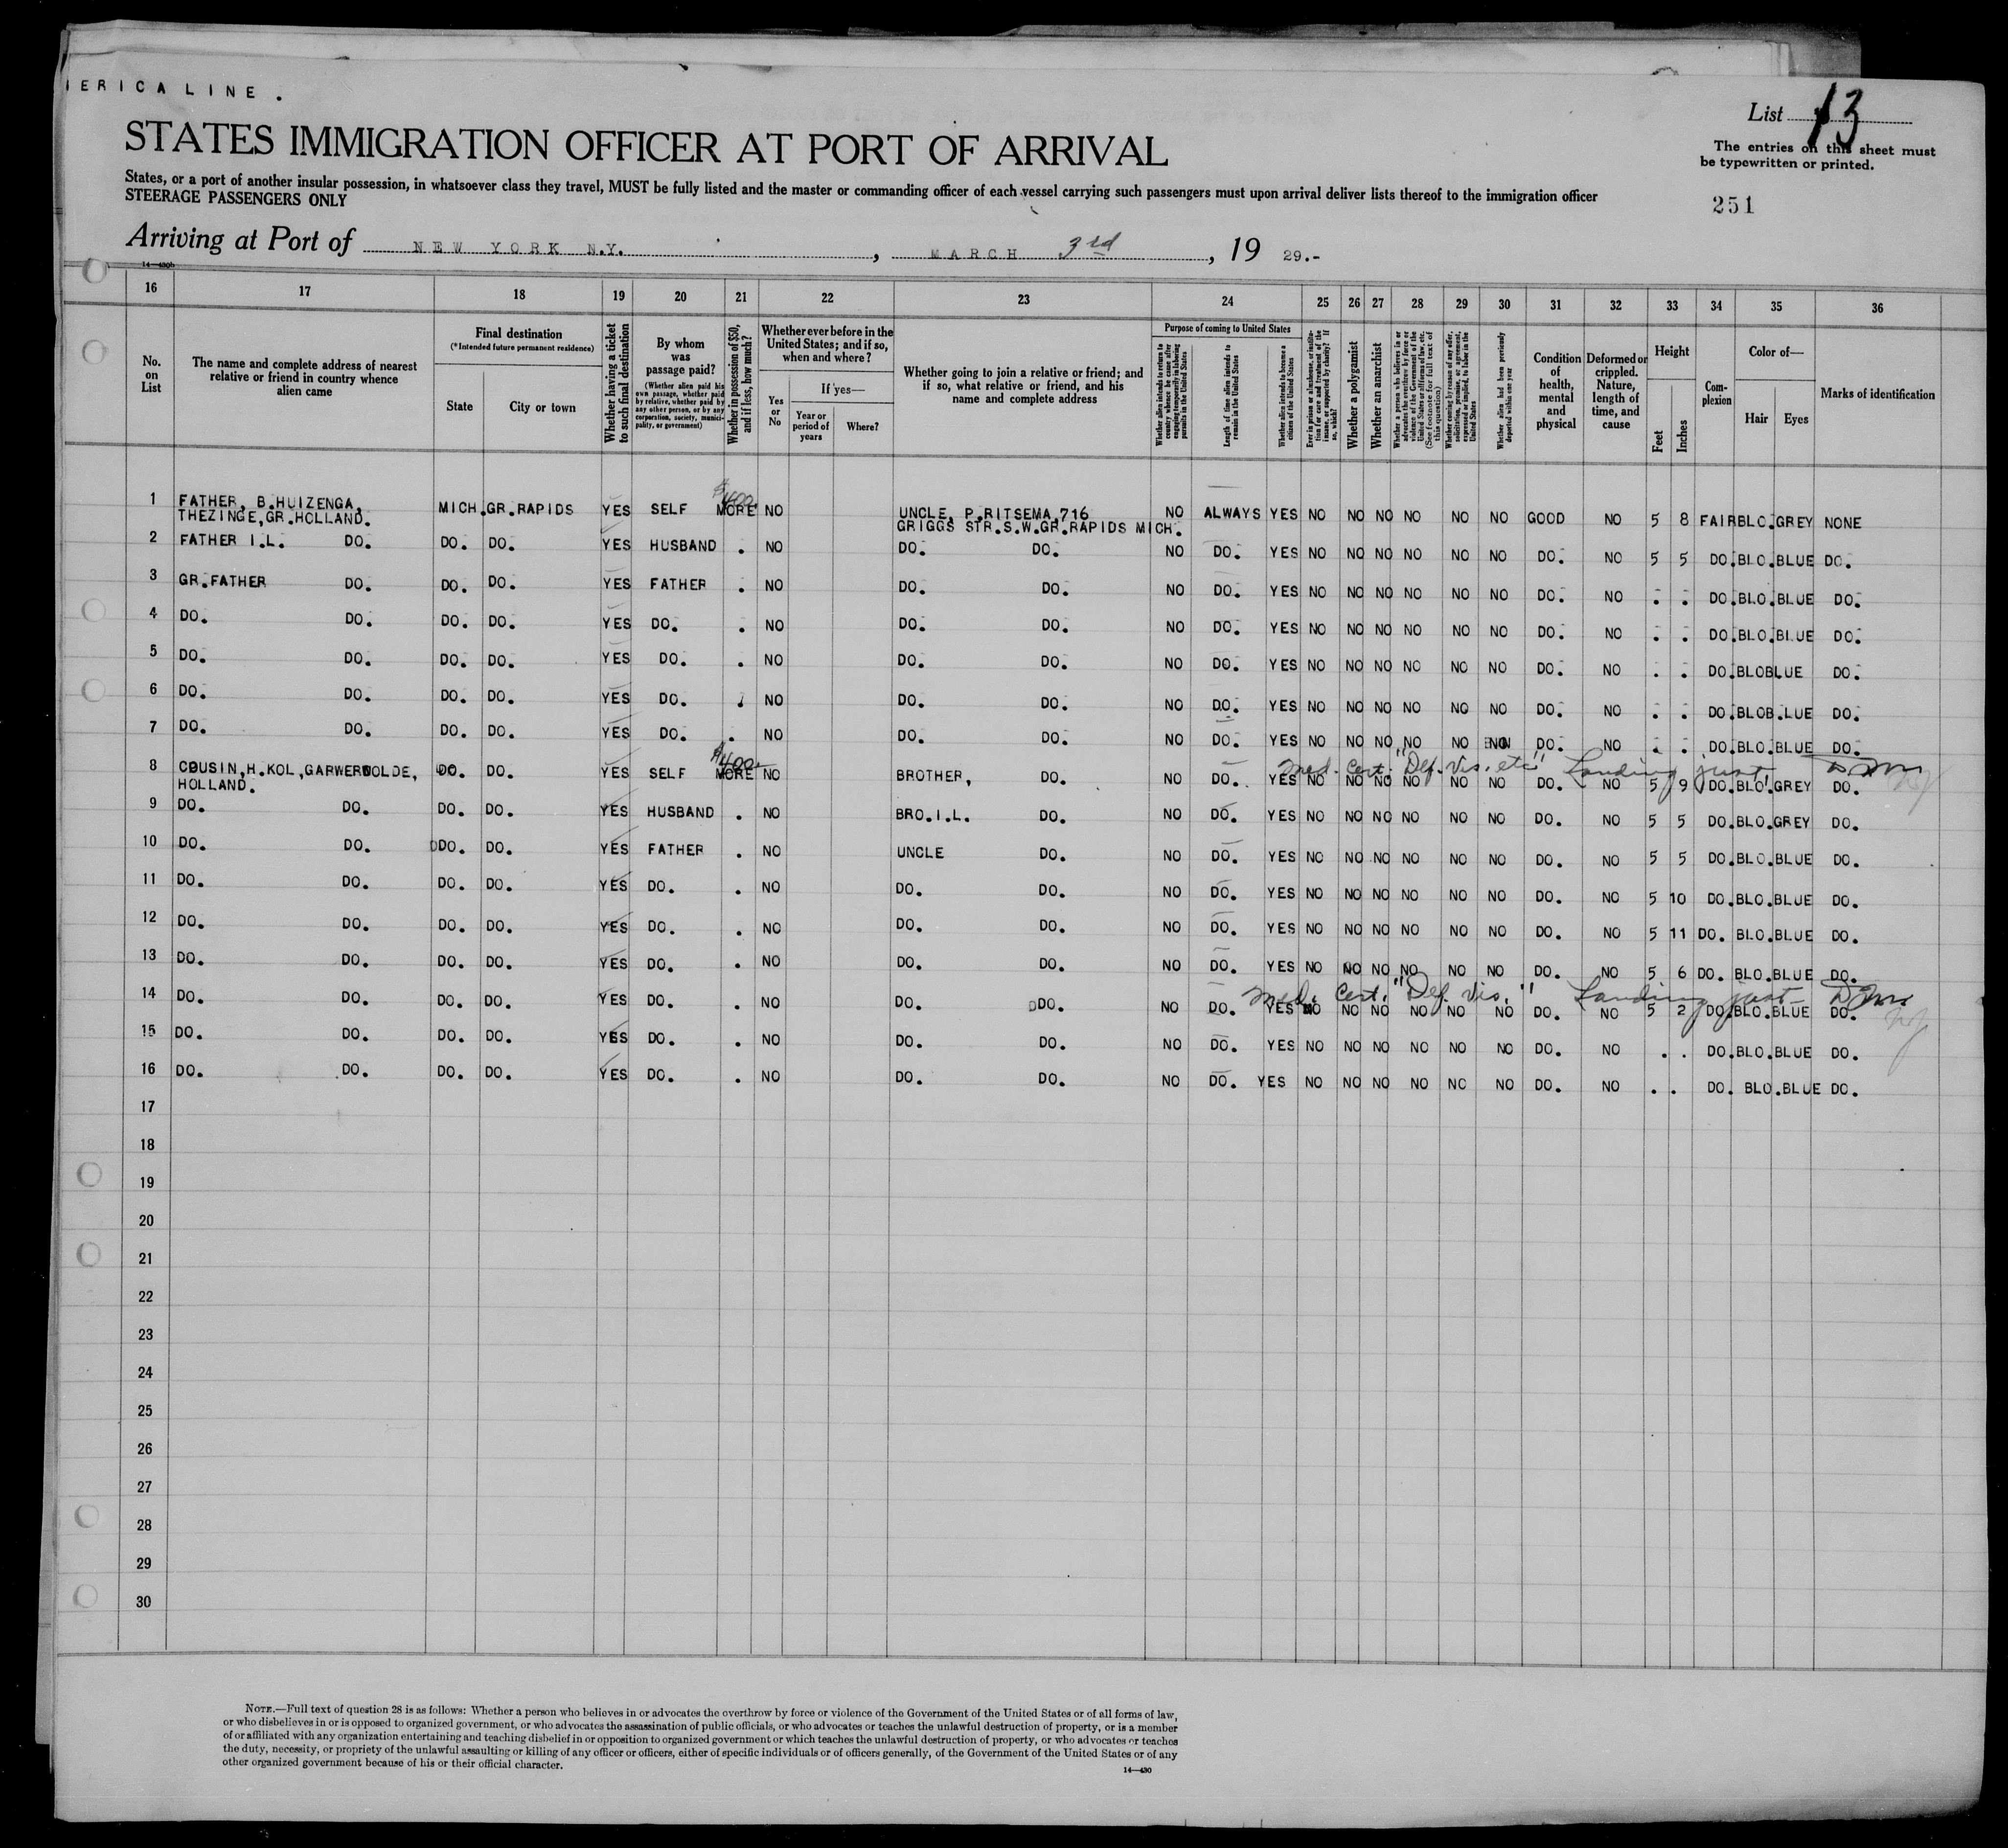 ERICA LINE.
List 13
STATES IMMIGRATION OFFICER AT PORT OF ARRIVAL
The entries on this sheet must
be typewritten or printed.
States, or a port of another insular possession, in whatsoever class they travel, MUST be fully listed and the master or commanding officer of each vessel carrying such passengers must upon arrival deliver lists thereof to the immigration officer
STEERAGE PASSENGERS ONLY
251
Arriving at Port of NEW YORK N.Y. , MARCH 3rd , 19 29.-
14—430b
16 17 18 19 20 21 22 23 24 25 26 27 28 29 30 31 32 33 34 35 36
No. on List
The name and complete address of nearest relative or friend in country whence alien came
Final destination
(*Intended future permanent residence)
State
City or town
Whether having a ticket to such final destination
By whom was passage paid?
(Whether alien paid his own passage, whether paid by relative, whether paid by any other person, or by any corporation, society, municipality, or government)
Whether in possession of $50, and if less, how much?
Whether ever before in the United States; and if so, when and where?
Yes or No
If yes—
Year or period of years
Where?
Whether going to join a relative or friend; and if so, what relative or friend, and his name and complete address
Purpose of coming to United States
Whether alien intends to return to country whence he came after engaging temporarily in laboring pursuits in the United States
Length of time alien intends to remain in the United States
Whether alien intends to become a citizen of the United States
Ever in prison or almshouse, or institution for care and treatment of the insane, or supported by charity? If so, which?
Whether a polygamist
Whether an anarchist
Whether a person who believes in or advocates the overthrow by force or violence of the Government of the United States or all forms of law, etc. (See footnote for full text of this question)
Whether coming by reason of any offer, solicitation, promise, or agreement, expressed or implied, to labor in the United States
Whether alien had been previously deported within one year
Condition of health, mental and physical
Deformed or crippled. Nature, length of time, and cause
Height
Feet
Inches
Complexion
Color of—
Hair
Eyes
Marks of identification
1 FATHER, B.HUIZENGA, MICH. GR.RAPIDS YES SELF $400 MORE NO UNCLE, P.RITSEMA,716 NO ALWAYS YES NO NO NO NO NO NO GOOD NO 5 8 FAIR BLO. GREY NONE
THEZINGE,GR.HOLLAND. GRIGGS STR.S.W.GR.RAPIDS MICH.
2 FATHER I.L. DO. DO. DO. YES HUSBAND . NO DO. DO. NO DO. YES NO NO NO NO NO NO DO. NO 5 5 DO. BLO. BLUE DO.
3 GR.FATHER DO. DO. DO. YES FATHER . NO DO. DO. NO DO. YES NO NO NO NO NO NO DO. NO . . DO. BLO. BLUE DO.
4 DO. DO. DO. DO. YES DO. . NO DO. DO. NO DO. YES NO NO NO NO NO NO DO. NO . . DO. BLO. BLUE DO.
5 DO. DO. DO. DO. YES DO. . NO DO. DO. NO DO. YES NO NO NO NO NO NO DO. NO . . DO. BLOBLUE DO.
6 DO. DO. DO. DO. YES DO. . NO DO. DO. NO DO. YES NO NO NO NO NO NO DO. NO . . DO. BLOB.LUE DO.
7 DO. DO. DO. DO. YES DO. . NO DO. DO. NO DO. YES NO NO NO NO NO NO DO. NO . . DO. BLO. BLUE DO.
Med. Cert. "Def. Vis. etc" Landing just
8 COUSIN,H.KOL,GARWERWOLDE, DO. DO. YES SELF $400 MORE NO BROTHER, DO. NO DO. YES NO NO NO NO NO NO DO. NO 5 9 DO. BLO. GREY DO.
HOLLAND.
9 DO. DO. DO. DO. YES HUSBAND . NO BRO.I.L. DO. NO DO. YES NO NO NO NO NO NO DO. NO 5 5 DO. BLO. GREY DO.
10 DO. DO. DO. DO. YES FATHER . NO UNCLE DO. NO DO. YES NO NO NO NO NO NO DO. NO 5 5 DO. BLO. BLUE DO.
11 DO. DO. DO. DO. YES DO. . NO DO. DO. NO DO. YES NO NO NO NO NO NO DO. NO 5 10 DO. BLO. BLUE DO.
12 DO. DO. DO. DO. YES DO. . NO DO. DO. NO DO. YES NO NO NO NO NO NO DO. NO 5 11 DO. BLO. BLUE DO.
13 DO. DO. DO. DO. YES DO. . NO DO. DO. NO DO. YES NO NO NO NO NO NO DO. NO 5 6 DO. BLO. BLUE DO.
Med. Cert. "Def. Vis." Landing just
14 DO. DO. DO. DO. YES DO. . NO DO. DDO. NO DO. YES NO NO NO NO NO NO DO. NO 5 2 DO. BLO. BLUE DO.
15 DO. DO. DO. DO. YES DO. . NO DO. DO. NO DO. YES NO NO NO NO NO NO DO. NO . . DO. BLO. BLUE DO.
16 DO. DO. DO. DO. YES DO. . NO DO. DO. NO DO. YES NO NO NO NO NO NO DO. NO . . DO. BLO. BLUE DO.
17
18
19
20
21
22
23
24
25
26
27
28
29
30
NOTE.—Full text of question 28 is as follows: Whether a person who believes in or advocates the overthrow by force or violence of the Government of the United States or of all forms of law,
or who disbelieves in or is opposed to organized government, or who advocates the assassination of public officials, or who advocates or teaches the unlawful destruction of property, or is a member
of or affiliated with any organization entertaining and teaching disbelief in or opposition to organized government or which teaches the unlawful destruction of property, or who advocates or teaches
the duty, necessity, or propriety of the unlawful assaulting or killing of any officer or officers, either of specific individuals or of officers generally, of the Government of the United States or of any
other organized government because of his or their official character.
14—430